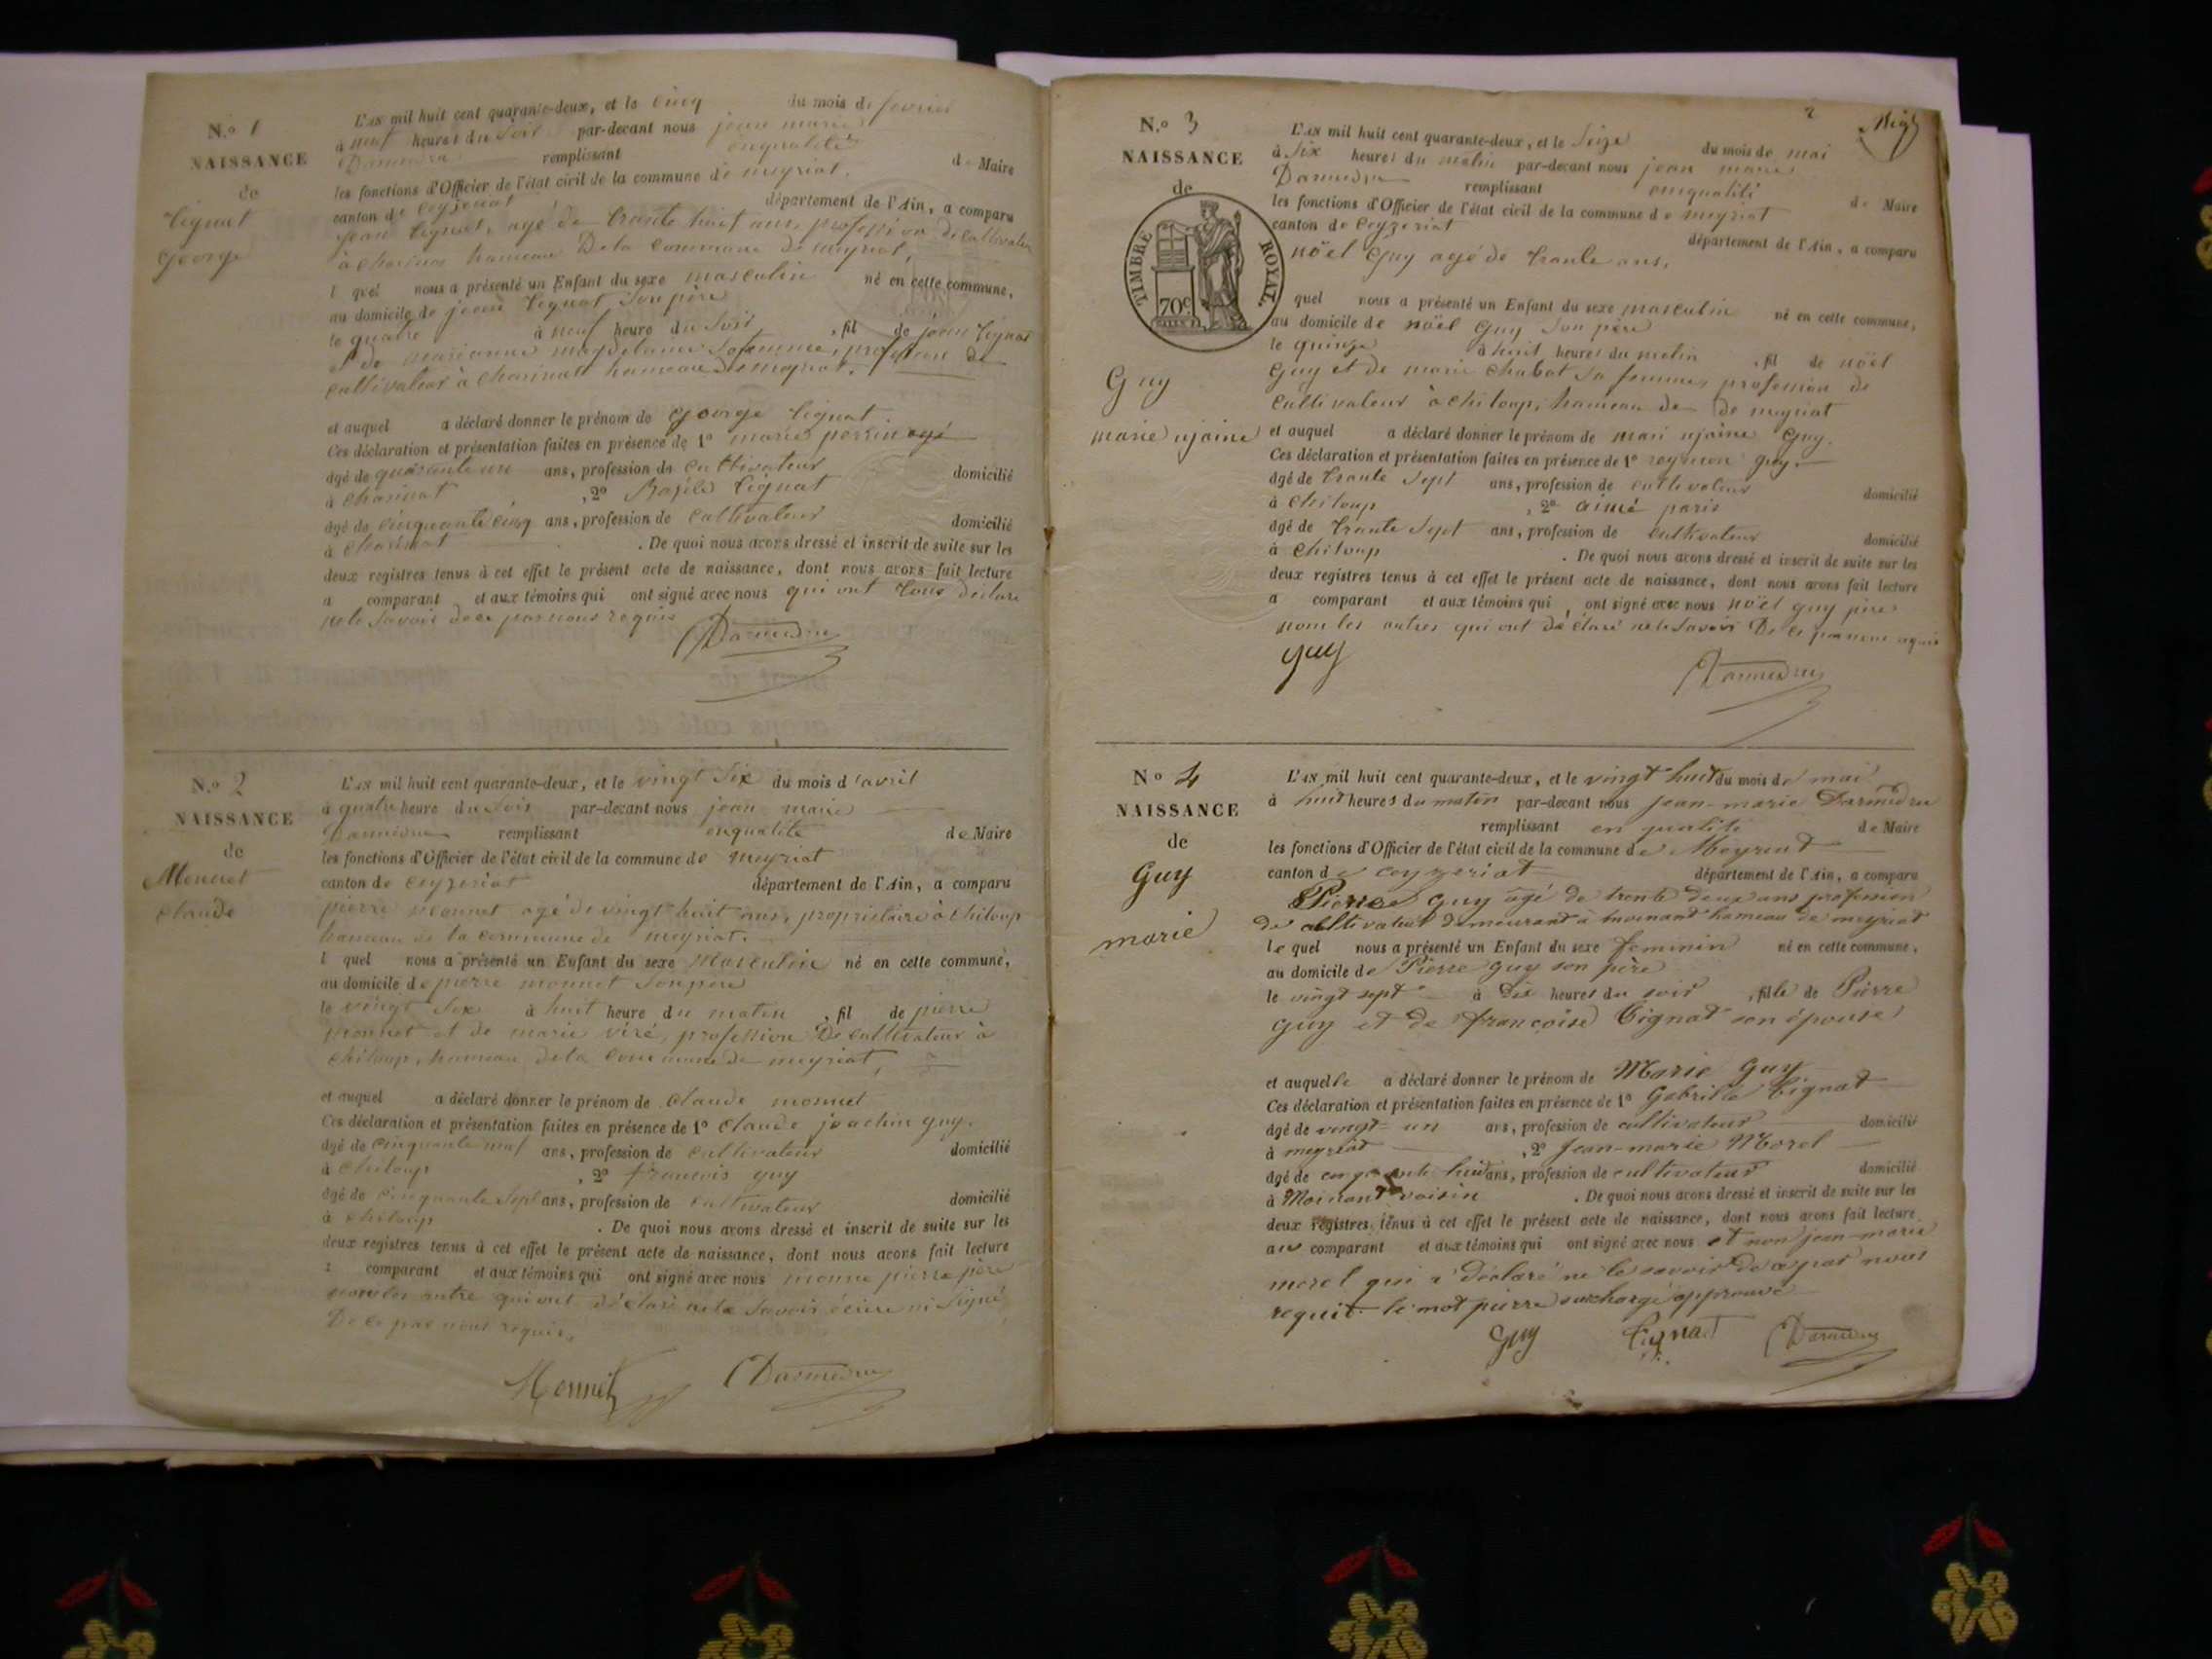 N.º 1
NAISSANCE
de
Tignat
George
L'an mil huit cent quarante-deux, et le cinq du mois de fevrier
à neuf heures du soir par-devant nous jean marie
Darmedru remplissant enqualité de Maire
les fonctions d'Officier de l'état civil de la commune de meyriat.
canton de ceyzeriat département de l'Ain, a comparu
jean Tignat, agé de trante huit ans, profession de cultivateur
à charinas hameau De la commune de meyriat,
l quel nous a présenté un Enfant du sexe masculin né en cette commune,
au domicile de jean Tignat son père
le quatre à neuf heure du soir , fil de jean Tignat
et de marianne magdelaine sa femme, profession de
cultivateur à charinat hameau de meyriat.
et auquel a déclaré donner le prénom de George Tignat
Ces déclaration et présentation faites en présence de 1º marie perrin agé
âgé de quarante un ans, profession de cultivateur domicilié
à charinat , 2º Bazile Tignat
âgé de cinquante cinq ans, profession de cultivateur domicilié
à charinat . De quoi nous avons dressé et inscrit de suite sur les
deux registres tenus à cet effet le présent acte de naissance, dont nous avons fait lecture
a comparant et aux témoins qui ont signé avec nous qui ont tous déclaré
ne le savoir de ce par nous requis
Darmedru
N.º 2
NAISSANCE
de
Monnet
claude
L'an mil huit cent quarante-deux, et le vingt six du mois d'avril
à quatre heure du soir par-devant nous jean marie
Darmedru remplissant enqualité de Maire
les fonctions d'Officier de l'état civil de la commune de meyriat
canton de ceyzeriat département de l'Ain, a comparu
pierre monnet agé de vingt huit ans, propriétaire à chiloup
hameau de la commune de meyriat.
l quel nous a présenté un Enfant du sexe Masculin né en cette commune,
au domicile de pierre monnet son père
le vingt six à huit heure du matin , fil de pierre
monnet et de marie viré, profession De cultivateur à
chiloup, hameau de la commune de meyriat,
et auquel a déclaré donner le prénom de claude monnet
Ces déclaration et présentation faites en présence de 1º claude joachin guy.
âgé de cinquante neuf ans, profession de cultivateur domicilié
à chiloup , 2º francois guy
âgé de cinquante sept ans, profession de cultivateur domicilié
à chiloup . De quoi nous avons dressé et inscrit de suite sur les
deux registres tenus à cet effet le présent acte de naissance, dont nous avons fait lecture
a comparant et aux témoins qui ont signé avec nous monne pierre père
non les autre qui ont déclaré ne le savoir écrire ni signé
De ce par nous requis,
Monnet Darmedru
2
N.º 3
NAISSANCE
de
TIMBRE ROYAL.
70c
Guy
marie ujaine
L'an mil huit cent quarante-deux, et le seize du mois de mai
à six heures du matin par-devant nous jean marie
Darmedru remplissant enqualité de Maire
les fonctions d'Officier de l'état civil de la commune de meyriat
canton de ceyzeriat département de l'Ain, a comparu
noël Guy agé de trante ans,
quel nous a présenté un Enfant du sexe masculin né en cette commune,
au domicile de noël Guy son père
le quinze à huit heures du matin , fil de noël
Guy et de marie chabot sa femme, profession de
cultivateur à chiloup, hameau de de meyriat
et auquel a déclaré donner le prénom de mari ujaine Guy.
Ces déclaration et présentation faites en présence de 1º reymon guy.
âgé de trante sept ans, profession de cultivateur domicilié
à chiloup , 2º aimé paris
âgé de trante sept ans, profession de cultivateur domicilié
à chiloup . De quoi nous avons dressé et inscrit de suite sur les
deux registres tenus à cet effet le présent acte de naissance, dont nous avons fait lecture
a comparant et aux témoins qui ont signé avec nous noël guy père
non les autres qui ont déclaré ne le savoir De ce par nous requis
guy Darmedru
Nº 4
NAISSANCE
de
Guy
marie
L'an mil huit cent quarante-deux, et le vingt huit du mois de mai
à huit heures du matin par-devant nous jean-marie Darmedru
remplissant en qualité de Maire
les fonctions d'Officier de l'état civil de la commune de Meyriat
canton de ceyzeriat département de l'Ain, a comparu
Pierre Guy âgé de trente deux ans profession
de cultivateur demeurant à hameau de meyriat
le quel nous a présenté un Enfant du sexe feminin né en cette commune,
au domicile de Pierre guy son père
le vingt sept à dix heures du soir , fille de Pierre
guy et de françoise Tignat son épouse
et auquelle a déclaré donner le prénom de Marie Guy
Ces déclaration et présentation faites en présence de 1º Gabrille Tignat
âgé de vingt-un ans, profession de cultivateur domicilié
à meyriat , 2º Jean-marie Morel
âgé de cinquante huit ans, profession de cultivateur domicilié
à voisin . De quoi nous avons dressé et inscrit de suite sur les
deux registres tenus à cet effet le présent acte de naissance, dont nous avons fait lecture
au comparant et aux témoins qui ont signé avec nous et non jean-marie
morel qui a déclaré ne le savoir de ce par nous
requit. le mot pierre surchargé approuvé
Guy Tignat Darmedru